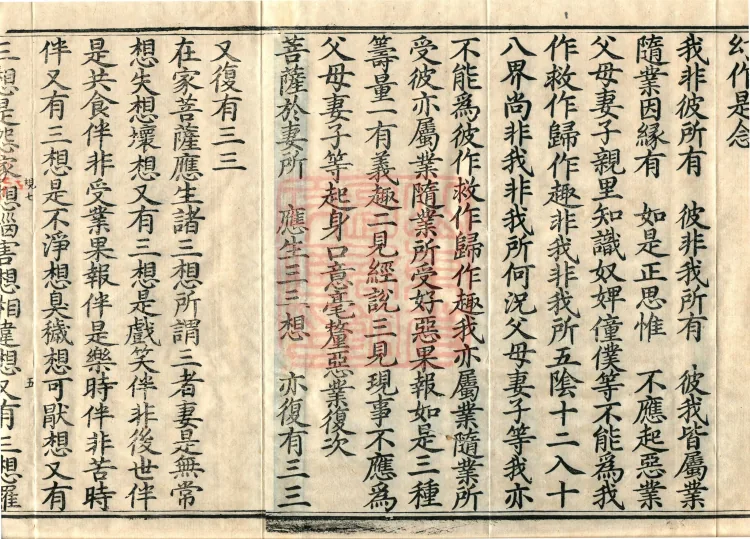 幻作是念
我非彼所有　彼非我所有　彼我皆屬業
隨業因緣有　如是正思惟　不應起惡業
父母妻子親里知識奴婢僮僕等不能為我
作救作歸作趣非我非我所五陰十二入十
八界尚非我非我所何況父母妻子等我亦
不能為彼作救作歸作趣我亦屬業隨業所
受彼亦屬業隨業所受好惡果報如是三種
籌量一有義趣二見經說三見現事不應為
父母妻子等起身口意毫釐惡業復次
菩薩於妻所　應生三三想　亦復有三三
又復有三三
在家菩薩應生諸三想所謂三者妻是無常
想失想壞想又有三想是戲笑伴非後世伴
是共食伴非受業果報伴是樂時伴非苦時
伴又有三想是不淨想臭穢想可厭想又有
現七
五
三想是怨家想惱害想相違想又有三想羅